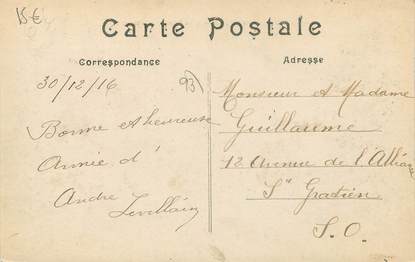 15€
Carte Postale
Correspondance
30/12/16
93)
Bonne et heureuse
Année d'
André
Levillain
Adresse
Monsieur et Madame
Guillaume
12 Avenue de l'Alliance
St Gratien
S.O.